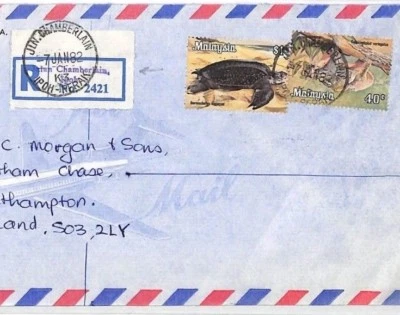 A.
JLN. CHAMBERLAIN
-7 JAN 82
IPOH-
R
Chamberlain,
2421
Malaysia
$1
Malaysia
40¢
C. Morgan & Sons,
ham Chase,
thampton.
land. SO3, 2LY
Mail